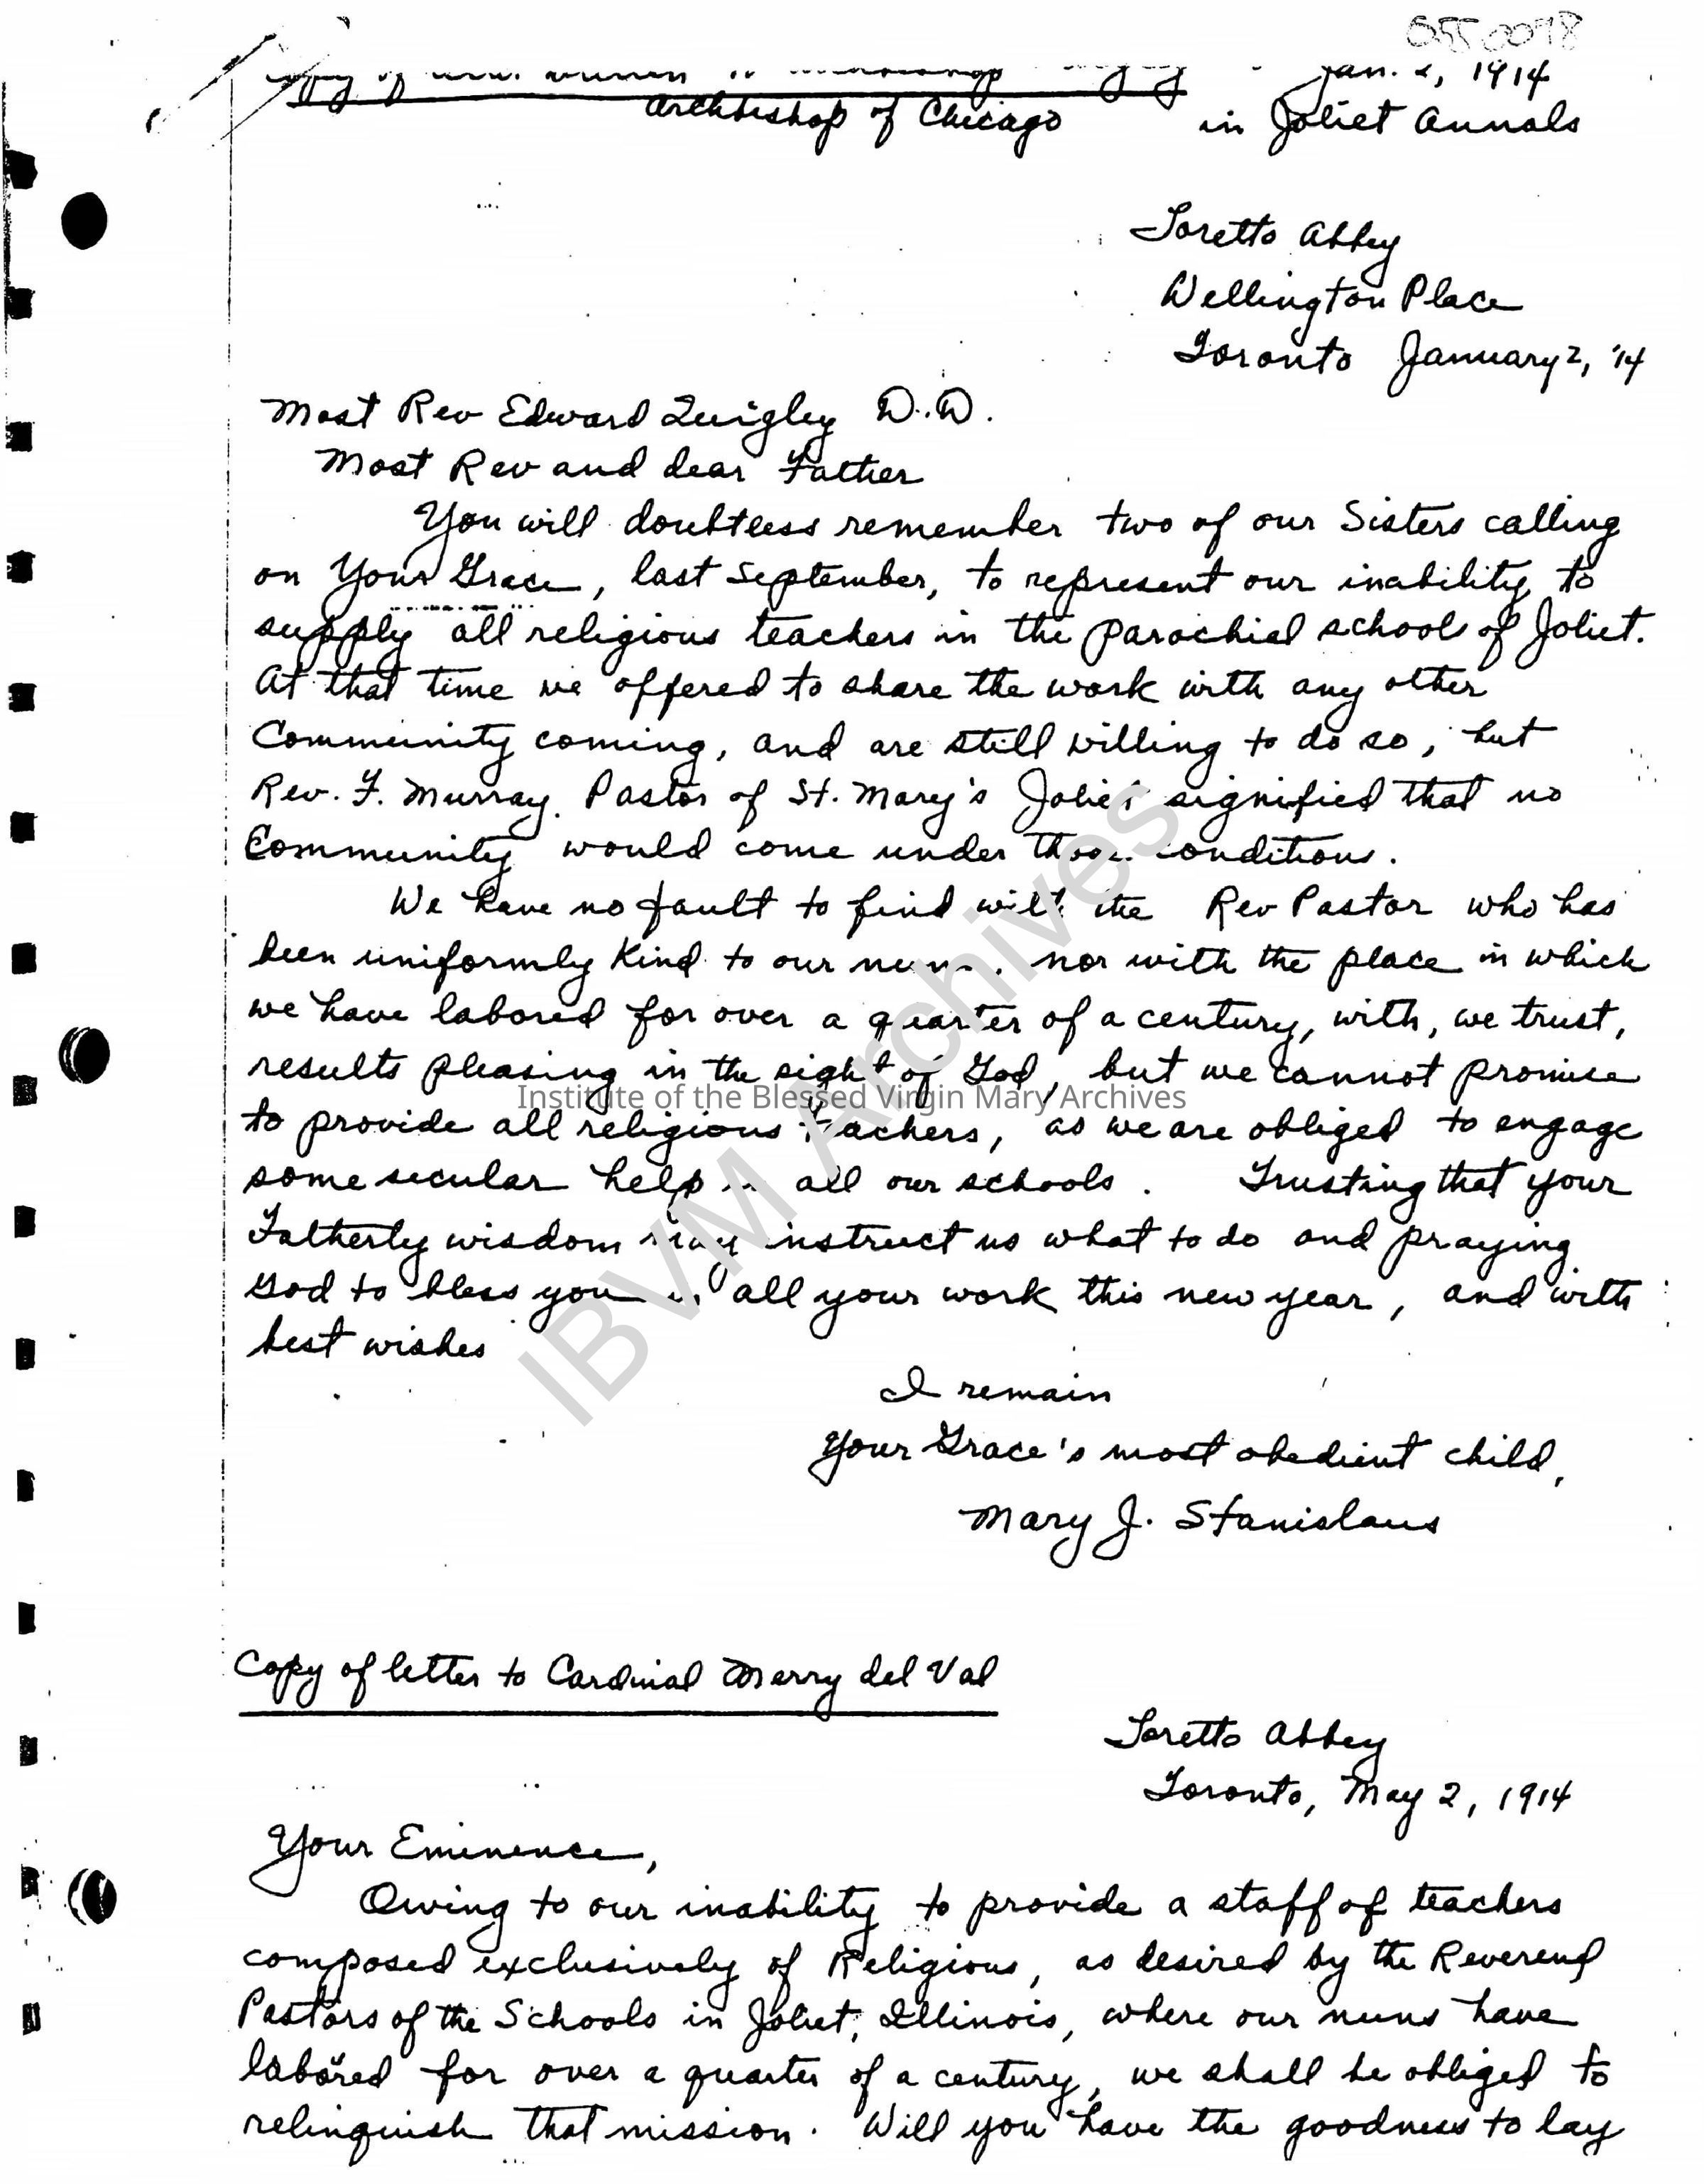 055 0098
Copy of
Jan. 2, 1914
Archbishop of Chicago in Joliet Annals
Loretto Abbey
Wellington Place
Toronto January 2, '14
Most Rev Edward Quigley D.D.
Most Rev and dear Father
You will doubtless remember two of our Sisters calling
on Your Grace, last September, to represent our inability to
supply all religious teachers in the parochial schools of Joliet.
At that time we offered to share the work with any other
Community coming, and are still willing to do so, but
Rev. F. Murray. Pastor of St. Mary's Joliet signified that no
Community would come under those conditions.
We have no fault to find with the Rev Pastor who has
been uniformly kind to our nuns, nor with the place in which
we have labored for over a quarter of a century, with, we trust,
results pleasing in the sight of God, but we cannot promise
to provide all religious teachers, as we are obliged to engage
some secular help in all our schools. Trusting that your
Fatherly wisdom may instruct us what to do and praying
God to bless you in all your work this new year, and with
best wishes
I remain
Your Grace's most obedient child,
Mary J. Stanislaus
Copy of letter to Cardinal Merry del Val
Loretto Abbey
Toronto, May 2, 1914
Your Eminence,
Owing to our inability to provide a staff of teachers
composed exclusively of Religious, as desired by the Reverend
Pastors of the Schools in Joliet, Illinois, where our nuns have
labored for over a quarter of a century, we shall be obliged to
relinquish that mission. Will you have the goodness to lay
IBVM Archives
Institute of the Blessed Virgin Mary Archives